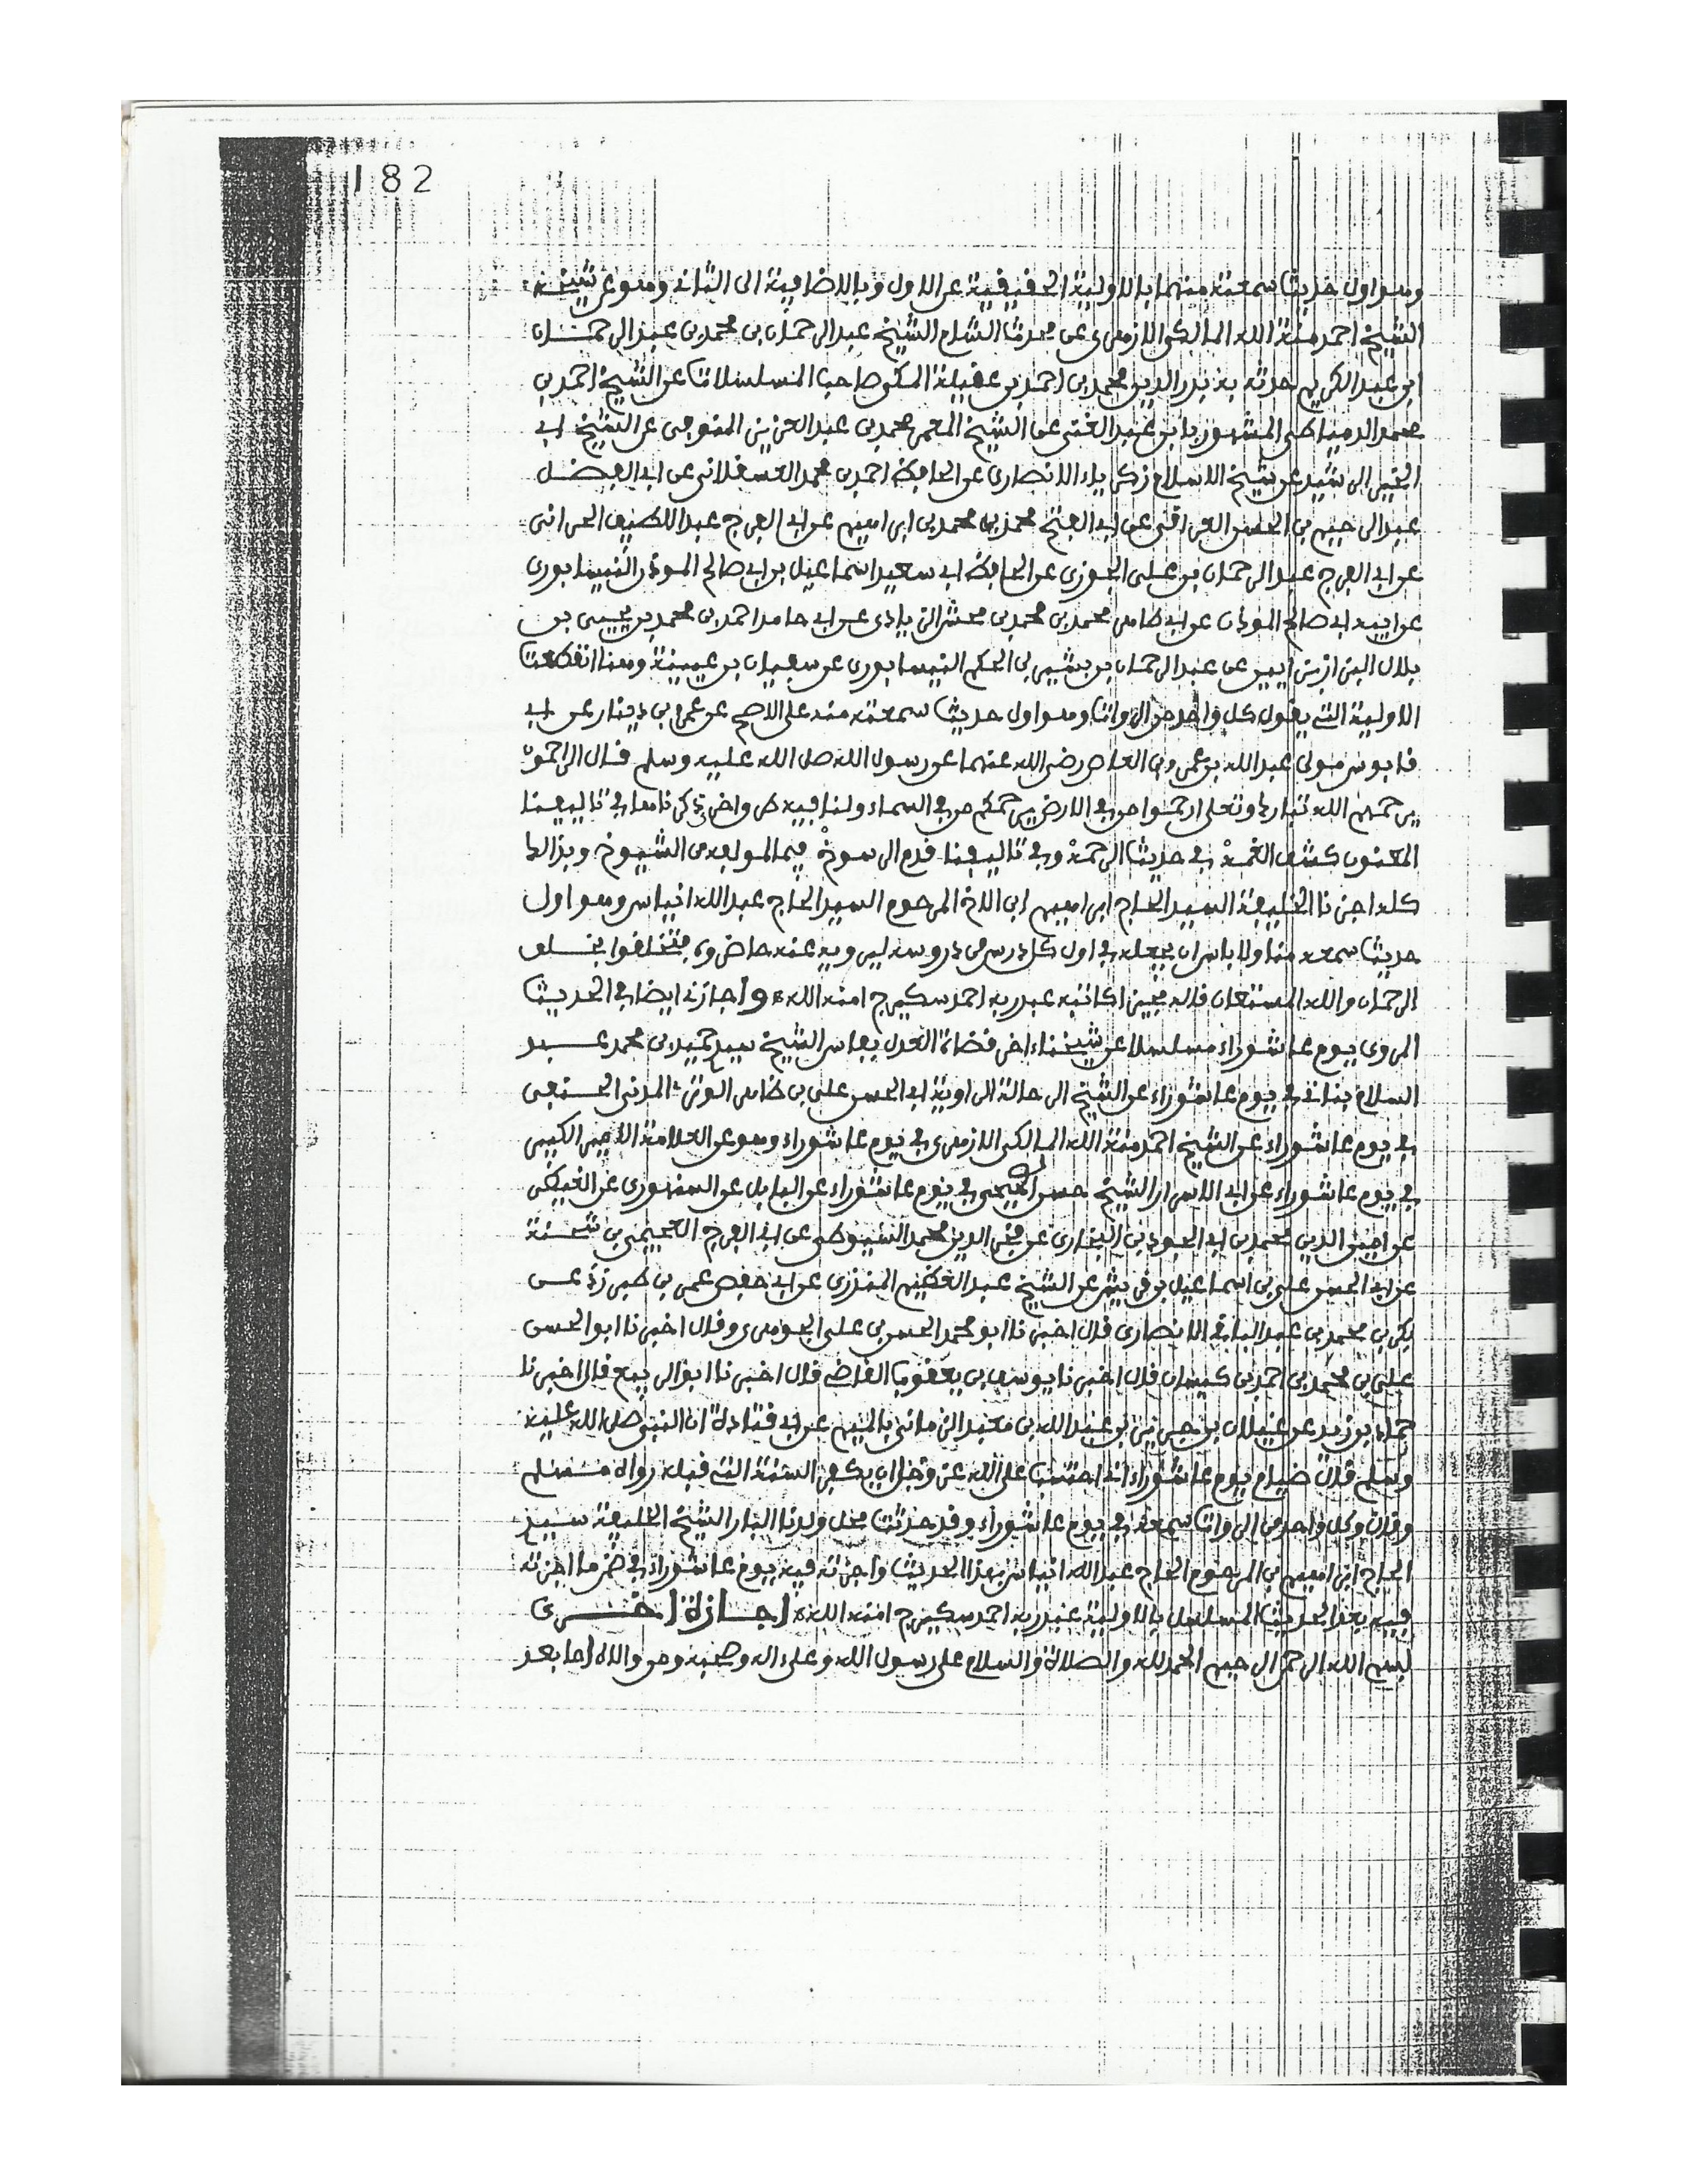 182
وهو اول حديث سمعته منهما بالاولية الحقيقية عن الاول وبالاضافية الى الثانى وهو عن شيخه
الشيخ احمد منة الله المالكى الازهرى عن محدث الشام الشيخ عبد الرحمان بن محمد بن عبد الرحمان
ابن عبد الكريم حدثه به بدر الدين محمد بن احمد بن عقيلة المكى صاحب المسلسلات عن الشيخ احمد بن
محمد الدمياطى المشهور بابن عبد الغنى عن الشيخ المعمر محمد بن عبد العزيز المنوفى عن الشيخ ابى
الخير الرشيد عن شيخ الاسلام زكرياء الانصارى عن الحافظ احمد بن محمد العسقلانى عن ابى الفضل
عبد الرحيم بن الحسين العراقى عن ابى الفتح محمد بن محمد بن ابراهيم عن ابى الفرج عبد اللطيف الحرانى
عن ابى الفرج عبد الرحمان بن على الجوزى عن الحافظ ابى سعيد اسماعيل بن ابى صالح الموذن النيسابورى
عن ابيه ابى صالح الموذن عن ابى طاهر محمد بن محمد بن محش الزيادى عن ابى حامد احمد بن محمد بن يحيى بن
بلال البزاز عن عبد الرحمان بن بشير بن الحكم النيسابورى عن سفيان بن عيينة وهنا انقطعت
الاولية التى يقول كل واحد من الرواة وهو اول حديث سمعته منه على الاصح عن عمرو بن دينار عن ابى
قابوس مولى عبد الله بن عمرو بن العاص رضى الله عنهما عن رسول الله صلى الله عليه وسلم قال الراحمون
يرحمهم الله تبارك وتعلى ارحموا من فى الارض يرحمكم من فى السماء ولنا فيه طرق اخرى ذكرناها فى تاليفنا
المعنون كشف الغمة فى حديث الرحمة وفى تاليفنا قدم الرسوخ فيما لمولفه من الشيوخ وبذالك
كله اجزنا الخليفة السيد الحاج ابراهيم ابن الاخ المرحوم السيد الحاج عبد الله انياس وهو اول
حديث سمعه منا ولا باس ان يجعله فى اول كل درس من دروسه ليرويه عنه حاضروه متخلقوا بخلق
الرحمان والله المستعان قاله مجيزا كاتبه عبد ربه احمد سكيرج امنه الله، واجازنى ايضا فى الحديث
المروى يوم عاشوراء مسلسلا عن شيخناء اخر قضاة العدل بفاس الشيخ سيد حميد بن محمد عبد
السلام بنانى فى يوم عاشوراء عن الشيخ الرحالة الراوية ابى الحسن على بن ظاهر الوترى المدنى الحنفى
فى يوم عاشوراء عن الشيخ احمد منة الله المالكى الازهرى فى يوم عاشوراء وهو عن العلامة الامير الكبير
فى يوم عاشوراء عن ابى الاسرار الشيخ حسن العجيمى فى يوم عاشوراء عن البابلى عن السنهورى عن الغيطى
عن امين الدين محمد بن ابى الجود بن البخارى عن فخر الدين محمد السيوطى عن ابى الفرج بن شحنة
عن ابى الحسن على بن اسماعيل بن قريش عن الشيخ عبد العظيم المنذرى عن ابى حفص عمر بن طبرزد عن
بكر بن محمد بن عبد الباقى الانصارى قال اخبرنا ابو محمد الحسن بن على الجوهرى وقال اخبرنا ابو الحسن
على بن محمد بن احمد بن كيسان قال اخبرنا يوسف بن يعقوب القاضى قال اخبرنا ابو الربيع قال اخبرنا
حماد بن زيد عن غيلان بن جرير عن عبد الله بن معبد الزمانى بالميم عن ابى قتادة ان النبى صلى الله عليه
وسلم قال صيام يوم عاشوراء انى احتسب على الله عز وجل ان يكفر السنة التى قبله رواه مسلم
وقال وكل واحد من الرواة سمعته فى يوم عاشوراء وقد حدثت محل ولدنا البار الشيخ الخليفة سيد
الحاج ابراهيم بن المرحوم الحاج عبد الله انياس بهذا الحديث واجزته فيه يوم عاشوراء فى ضمن ما اجزته
فيه بعد الحديث المسلسل بالاولية عبد ربه احمد سكيرج امنه الله، اجازة اخرى
بسم الله الرحمن الرحيم الحمد لله والصلاة والسلام على رسول الله وعلى اله وصحبه ومن والاه اما بعد